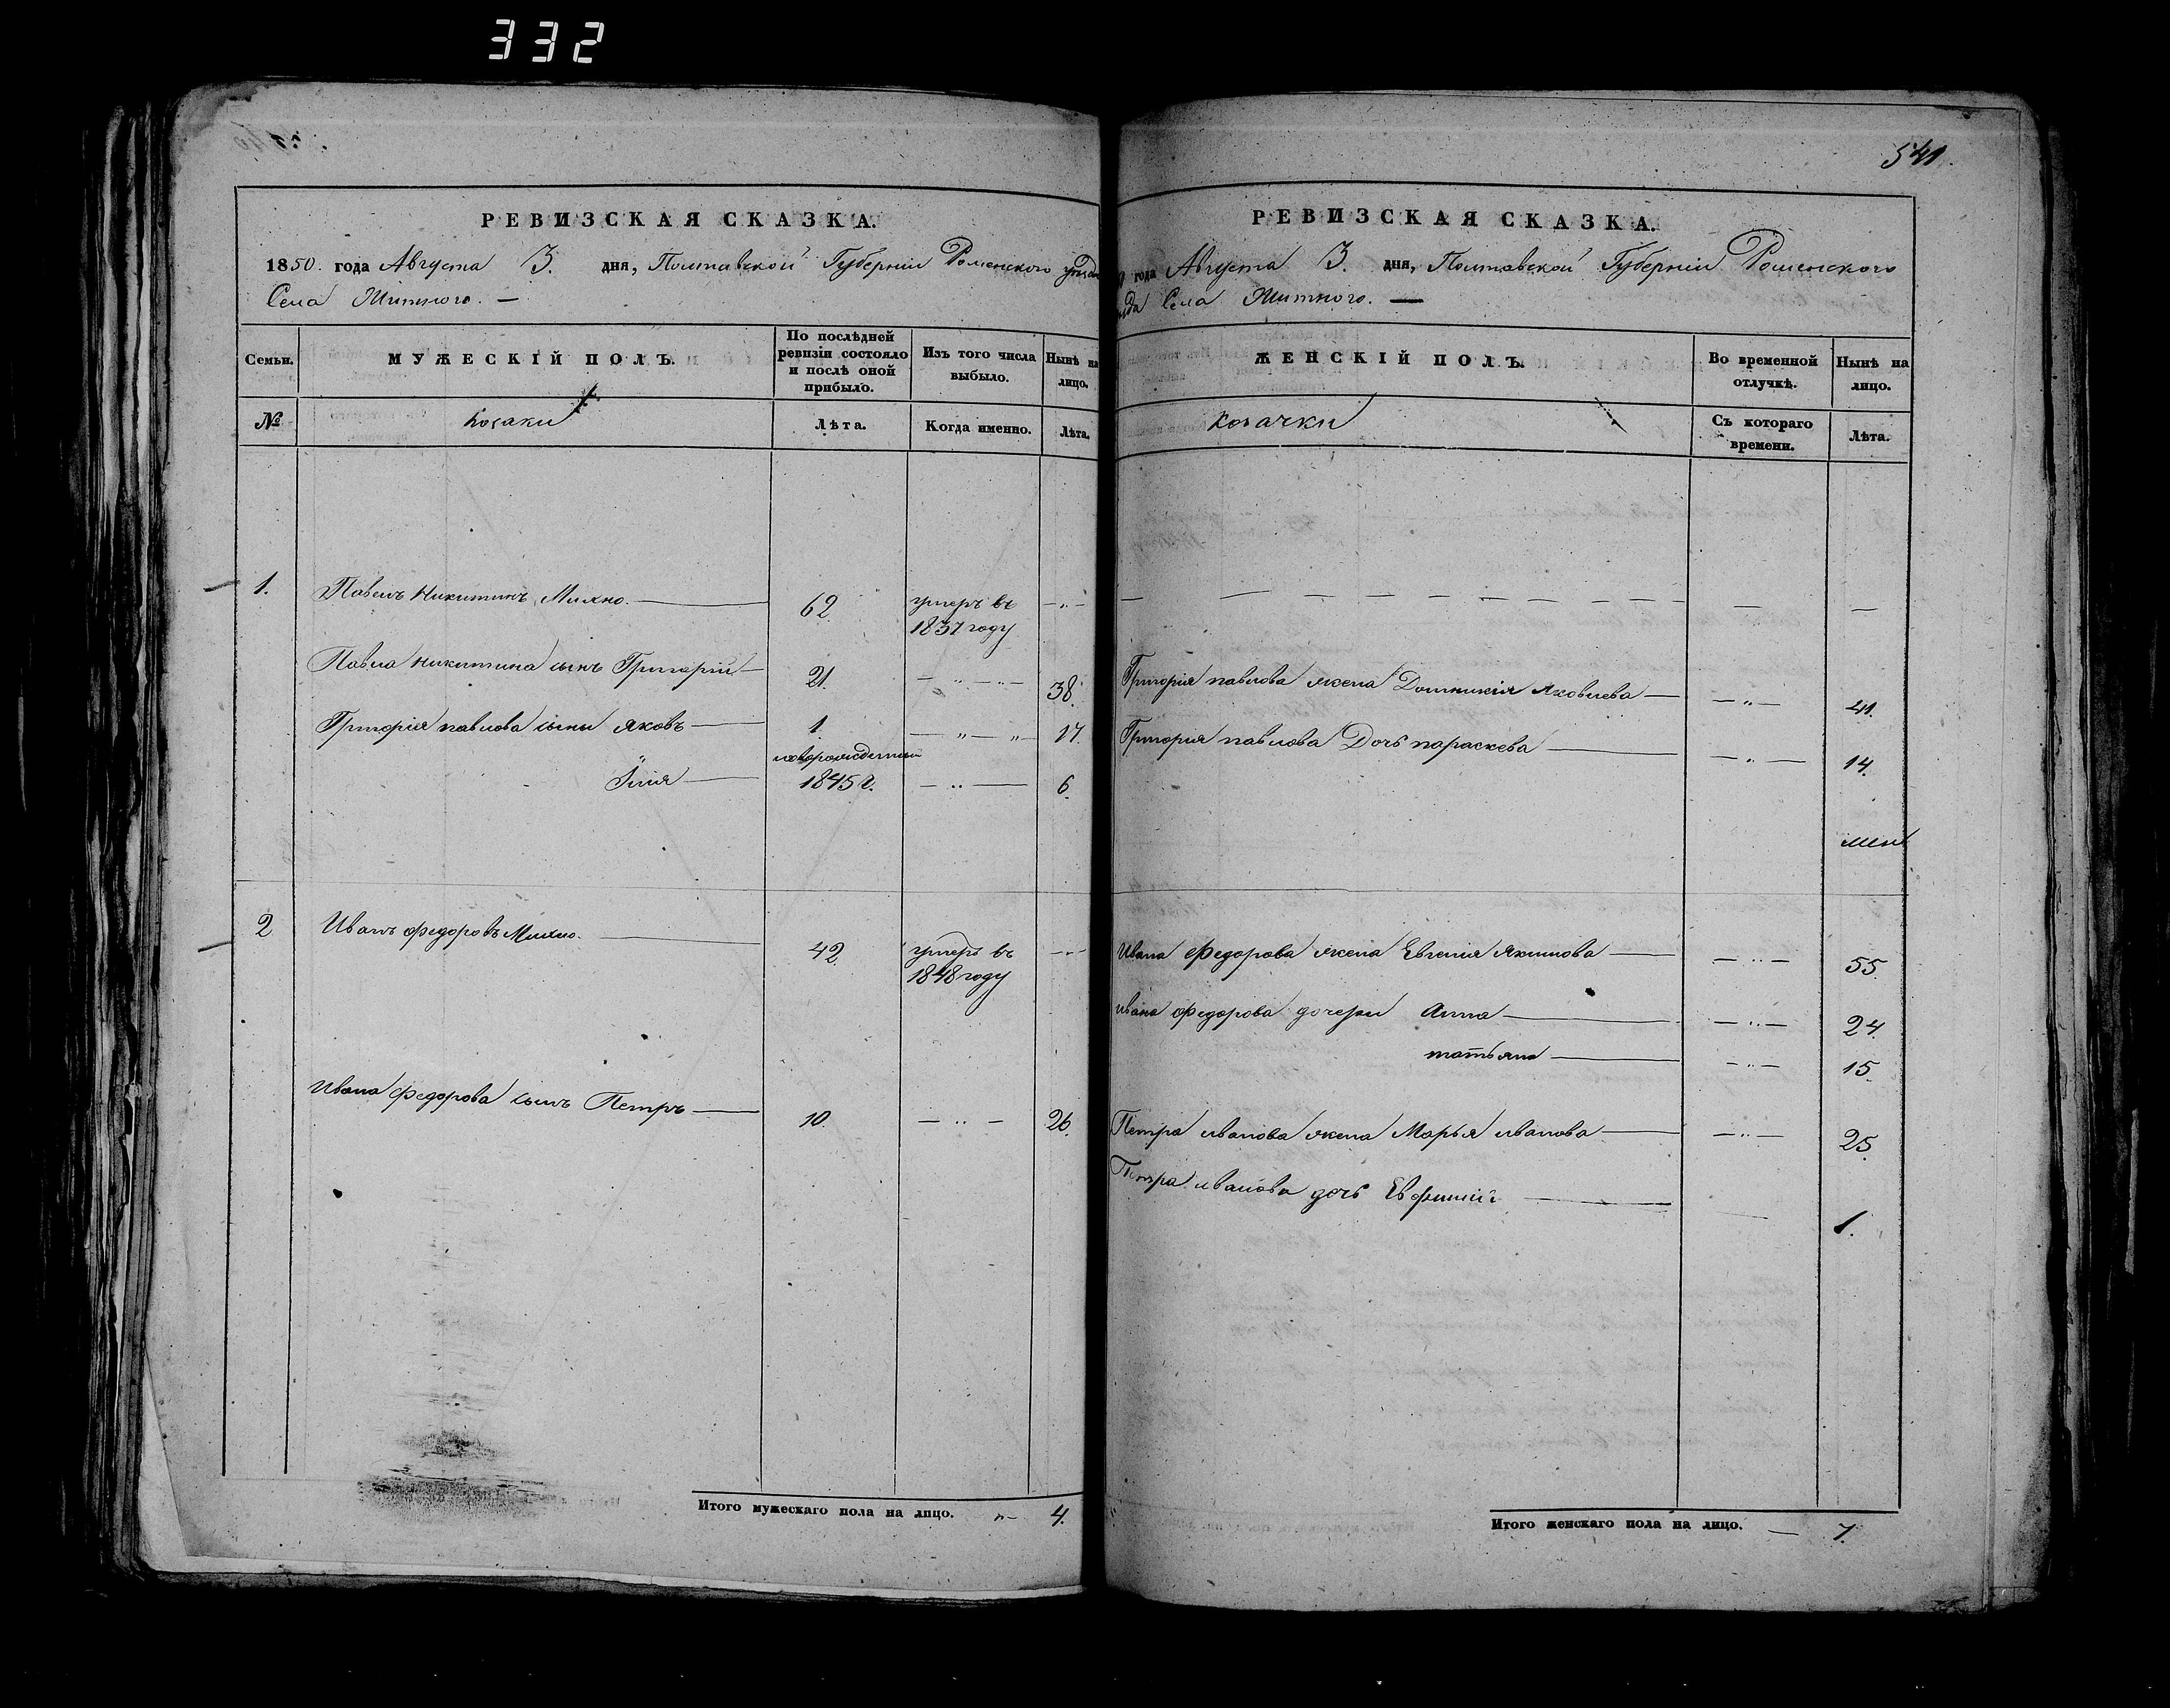 332
РЕВИЗСКАЯ СКАЗКА.
1850. года Августа 3. дня, Полтавской Губерніи Роменского уезда
Села Житного. —
Семьи. МУЖЕСКІЙ ПОЛЪ. По послѣдней ревизіи состояло и послѣ оной прибыло. Изъ того числа выбыло. Нынѣ на лицо.
№ Козаки Лѣта. Когда именно. Лѣта.
1. Павелъ Никитинъ Михно. — 62 умеръ въ 1837 году — „ —
Павла Никитина сынъ Григорій — 21. — „ — „ — 38.
Григорія павлова сыны яковъ — 1. — „ — „ 17.
Илія — новорожденный 1845 г. — „ — 6.
2 Иванъ федоровъ Михно. — 42. умеръ въ 1848 году — „ —
Ивана федорова сынъ Петръ — 10. — „ — 26.
Итого мужескаго пола на лицо. „ — 4.
541.
РЕВИЗСКАЯ СКАЗКА.
года Августа 3. дня, Полтавской Губерніи Роменского
Села Житного. —
ЖЕНСКІЙ ПОЛЪ. Во временной отлучкѣ. Нынѣ на лицо.
Козачки Съ котораго времени. Лѣта.
Григорія павлова жена Домникія яковлева — — „ — 41.
Григорія павлова Дочь параскева — — „ — 14.
Ивана Федорова жена Евгенія Якимова — — „ — 55.
Ивана федорова дочери Анна — — „ — 24.
татьяна — — „ — 15.
Петра иванова жена Марья иванова — — „ — 25.
Петра иванова дочь — 1.
Итого женскаго пола на лицо. — 7.